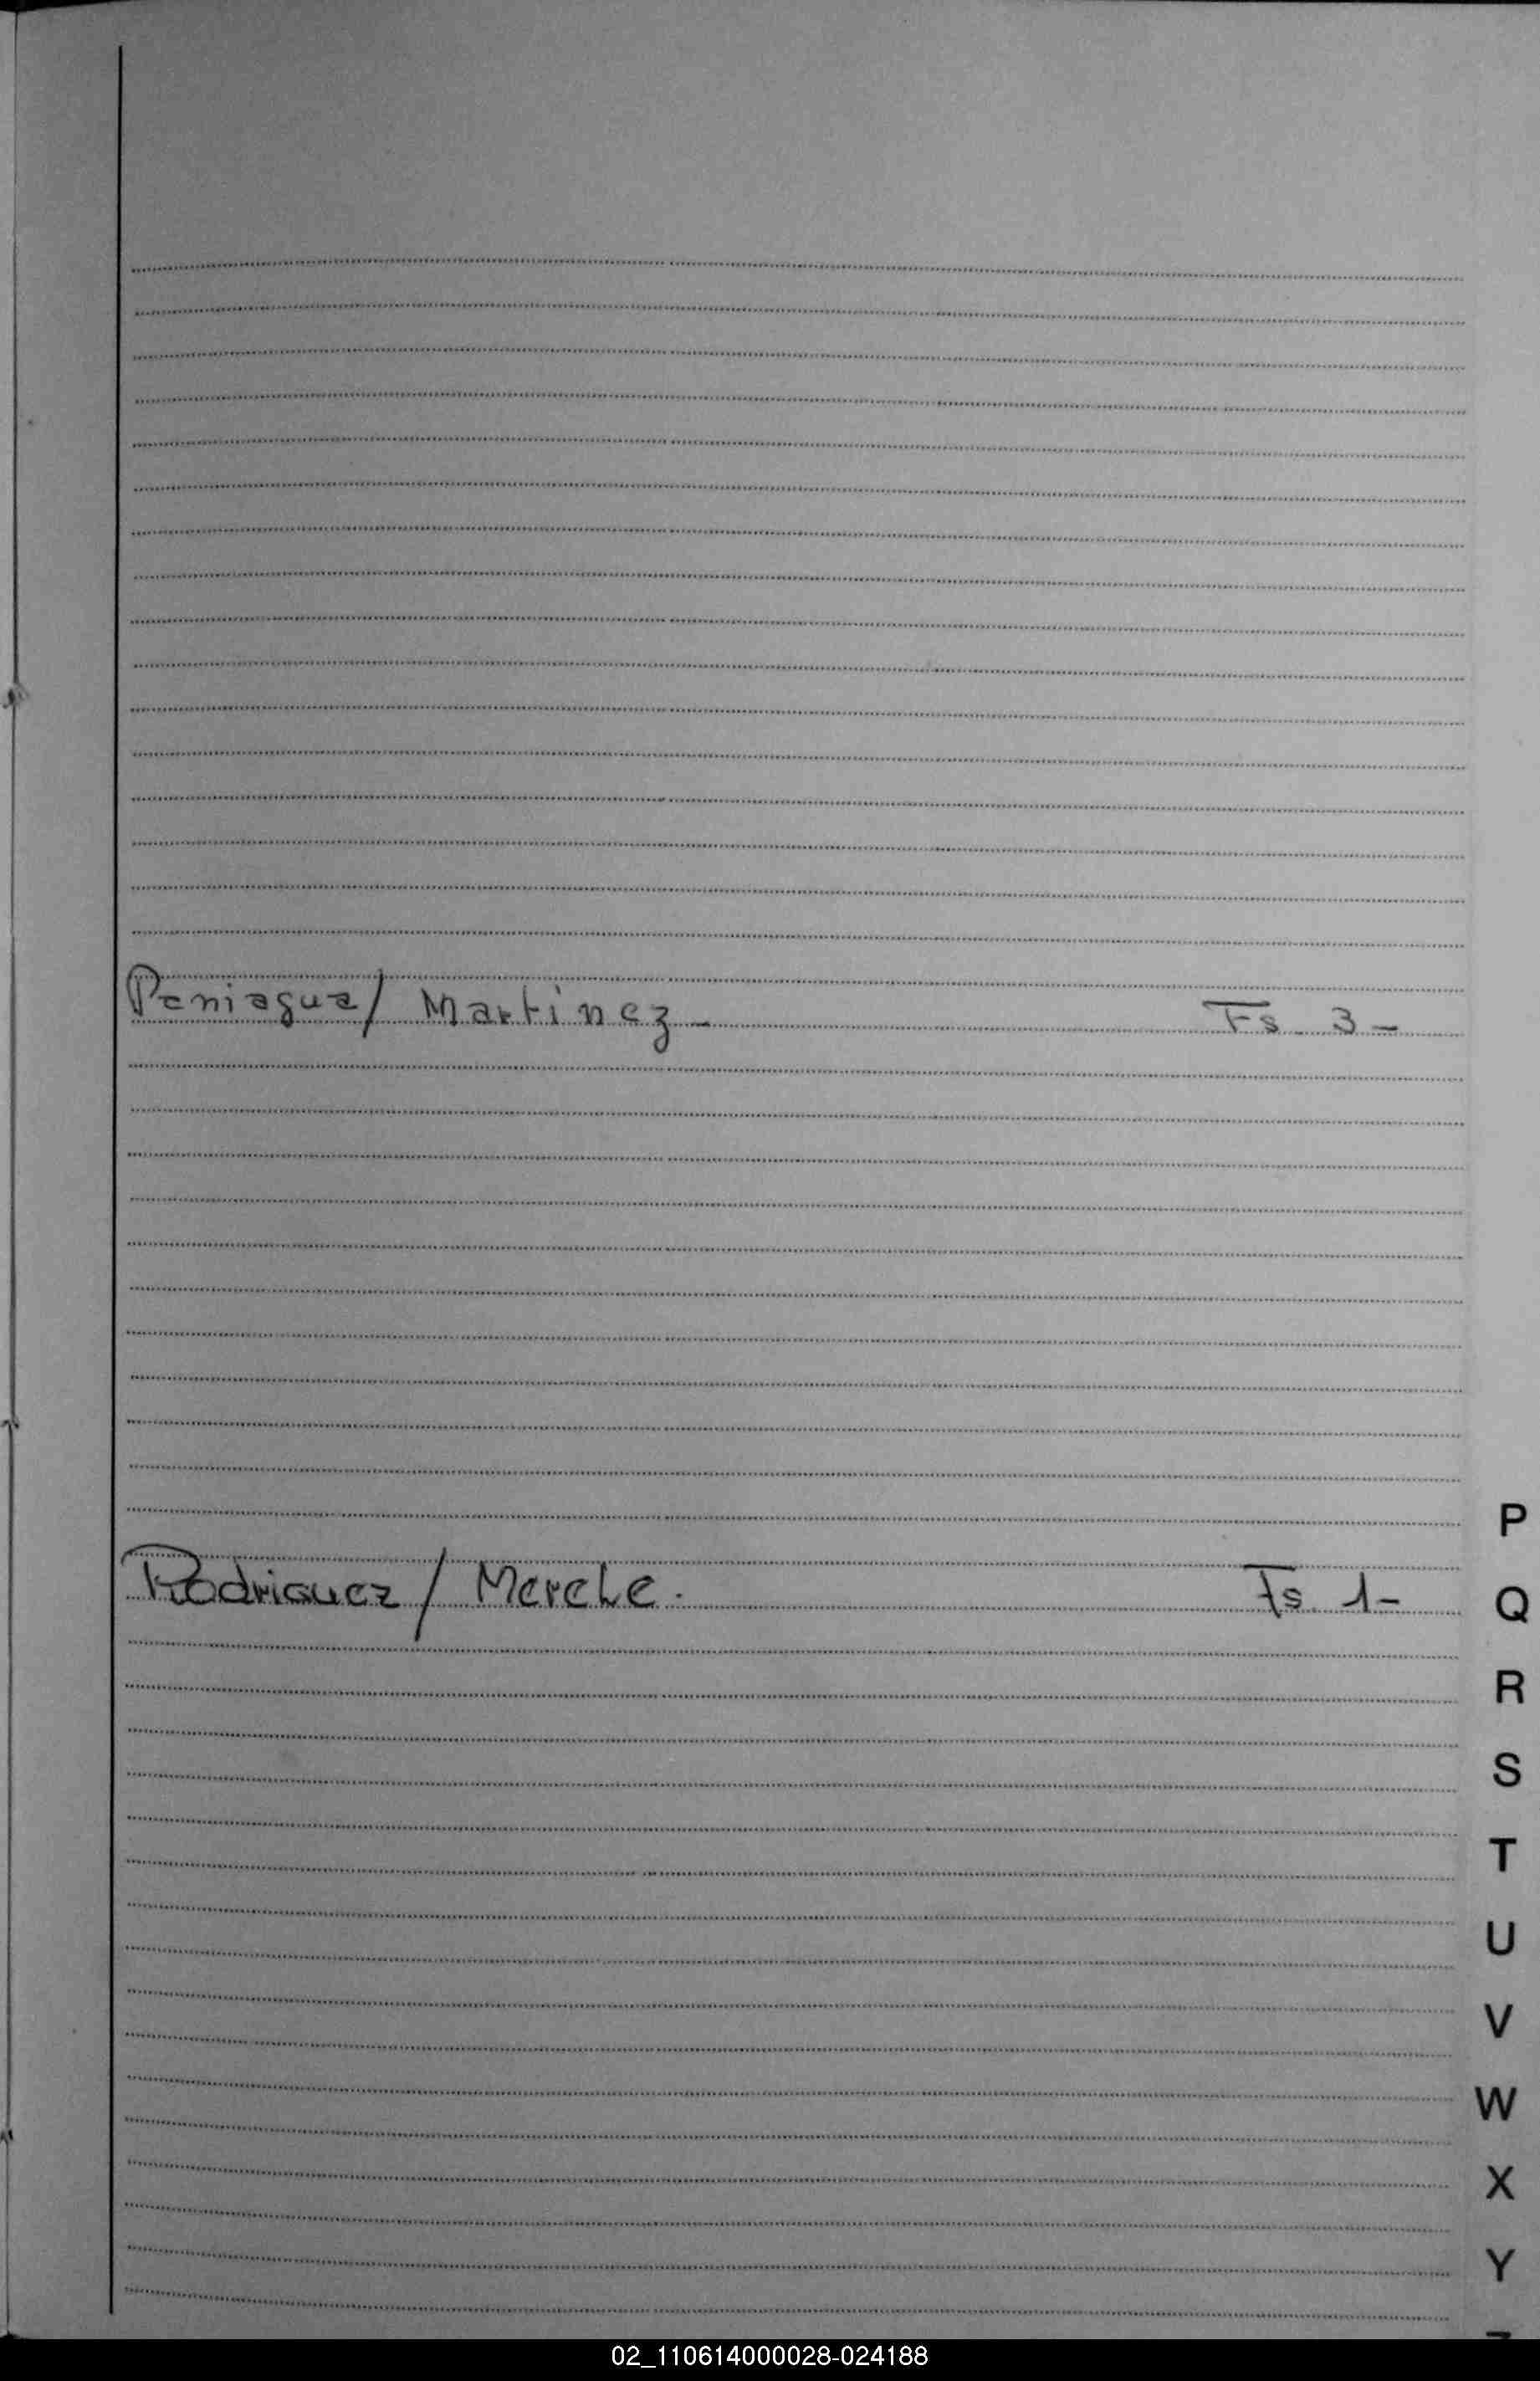 Paniagua / Martinez - Fs 3 -
P
Rodriguez / Merche. Fs. 1 -
Q
R
S
T
U
V
W
X
Y
02_110614000028-024188